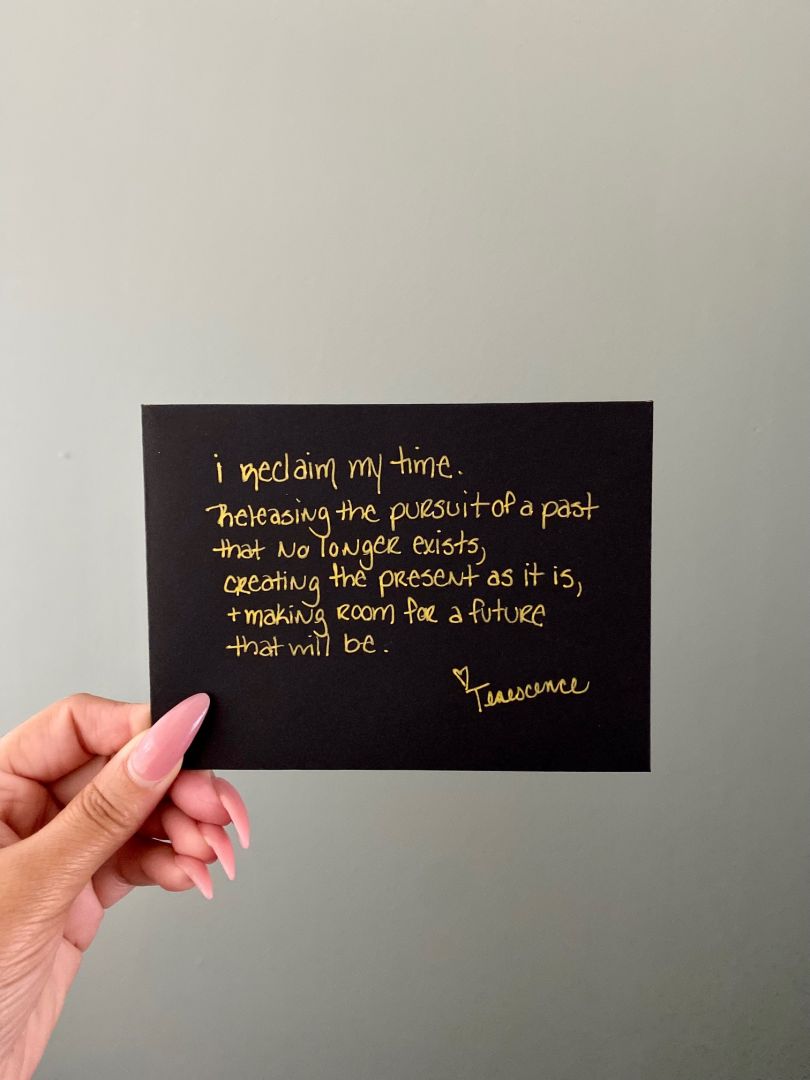 i reclaim my time.
Releasing the pursuit of a past
that no longer exists,
creating the present as it is,
+ making room for a future
that will be.
♡Tenescence